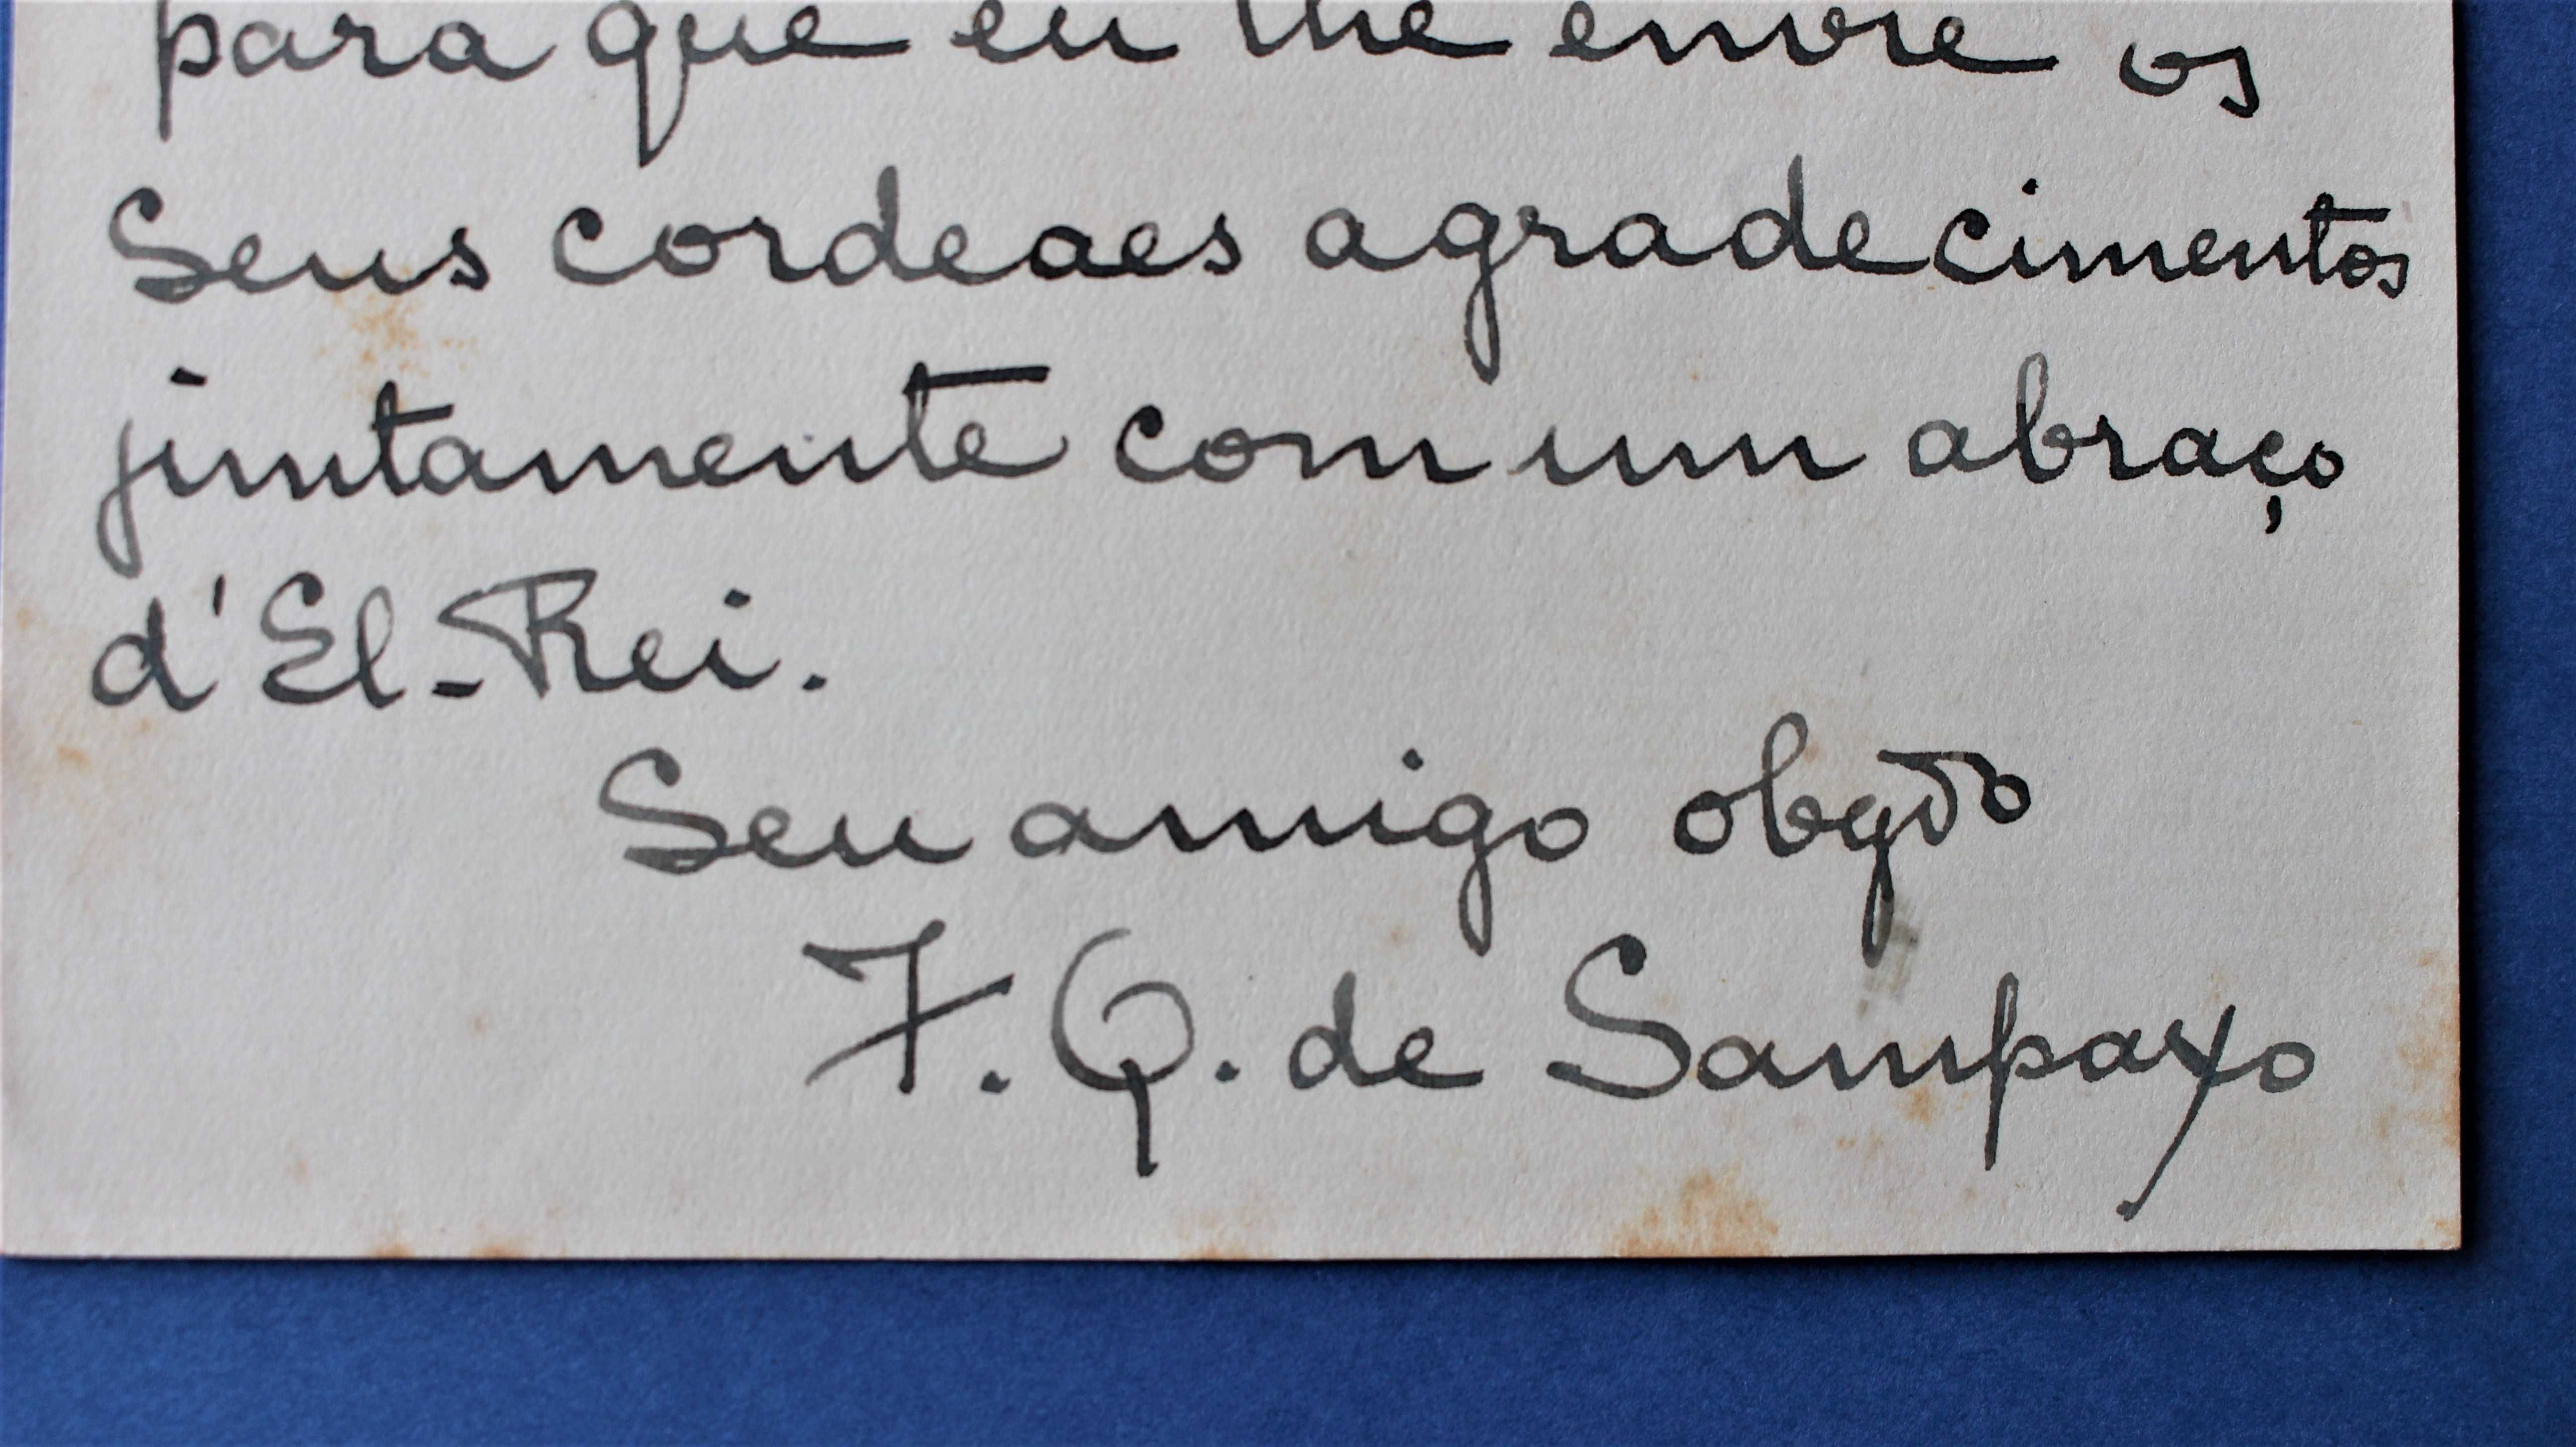 para que eu lhe envie os
Seus cordeaes agradecimentos
juntamente com um abraço
d'El-Rei.
Seu amigo obgdo
F. Q. de Sampayo